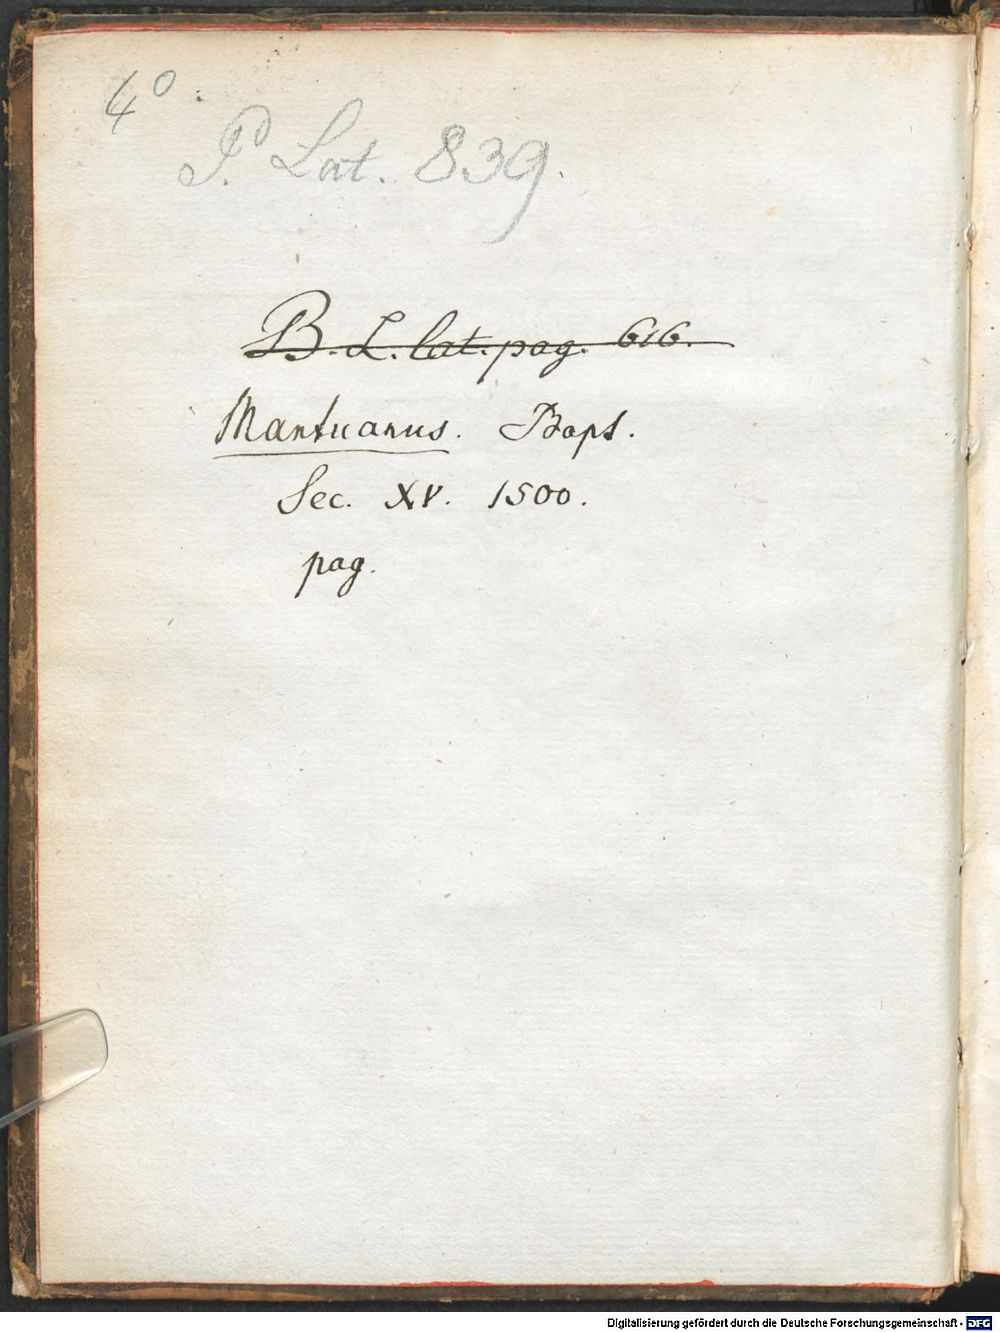 4°
P. Lat. 839.
B. L. lat. pag. 616.
Mantuanus. Bapt.
Sec. XV. 1500.
pag.
Digitalisierung gefördert durch die Deutsche Forschungsgemeinschaft - DFG